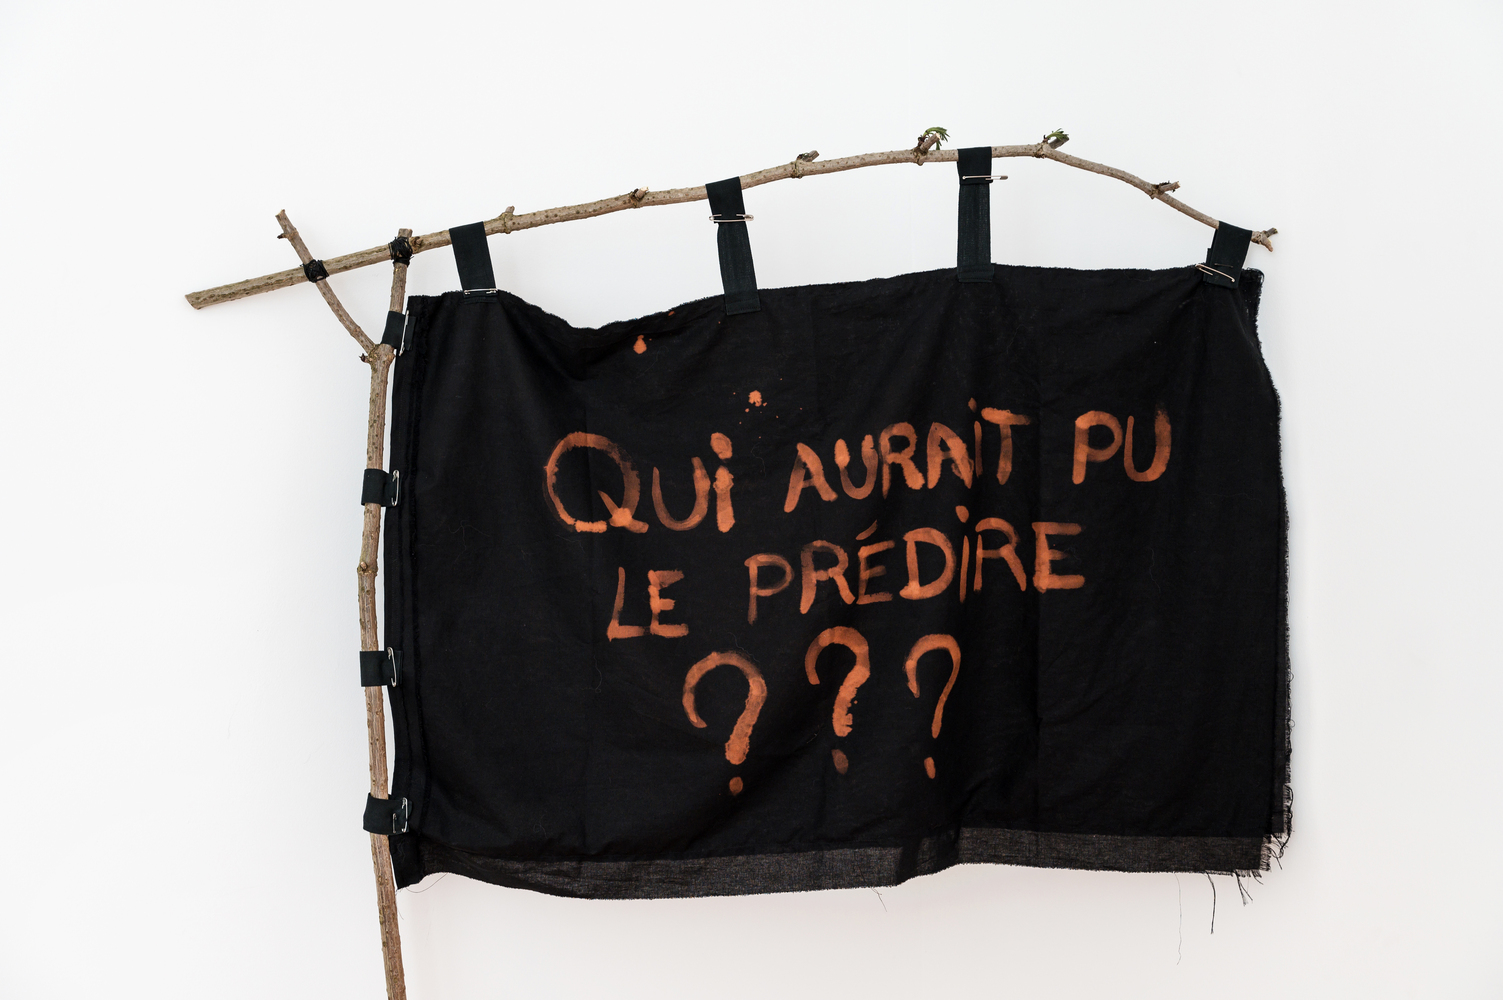 Qui AURAiT PU
LE PRÉDiRE
???